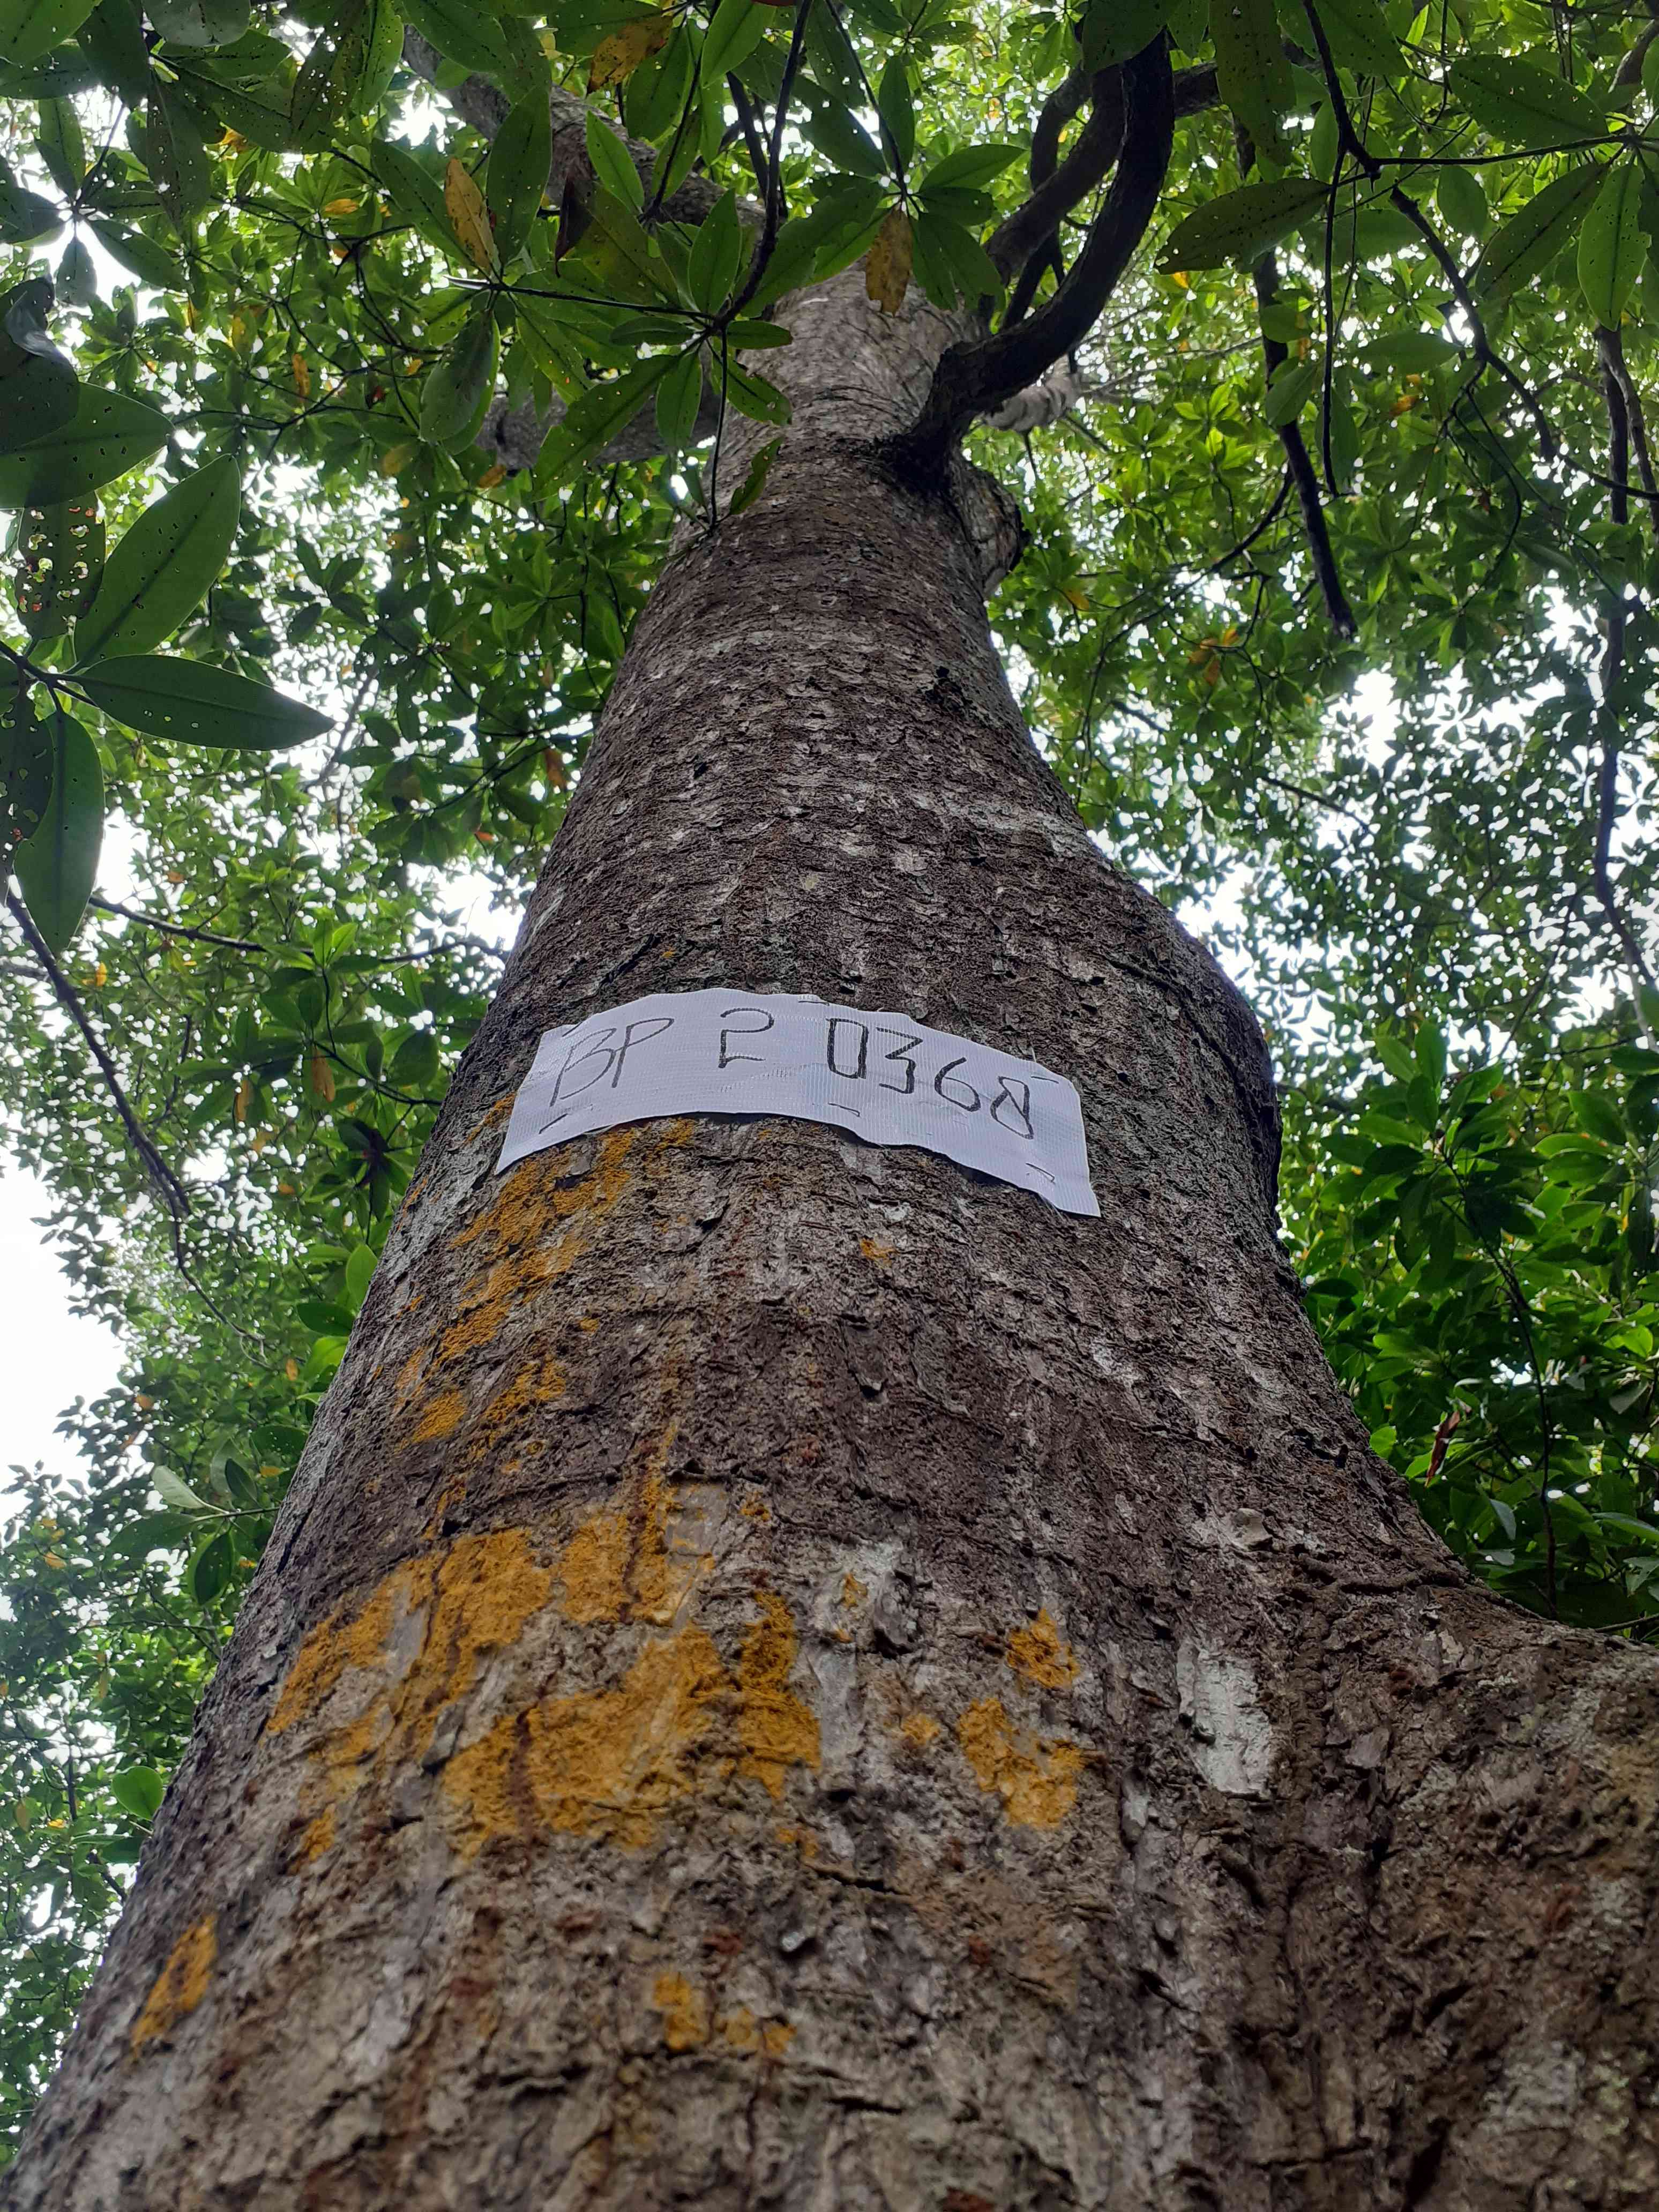 BP 2 0368